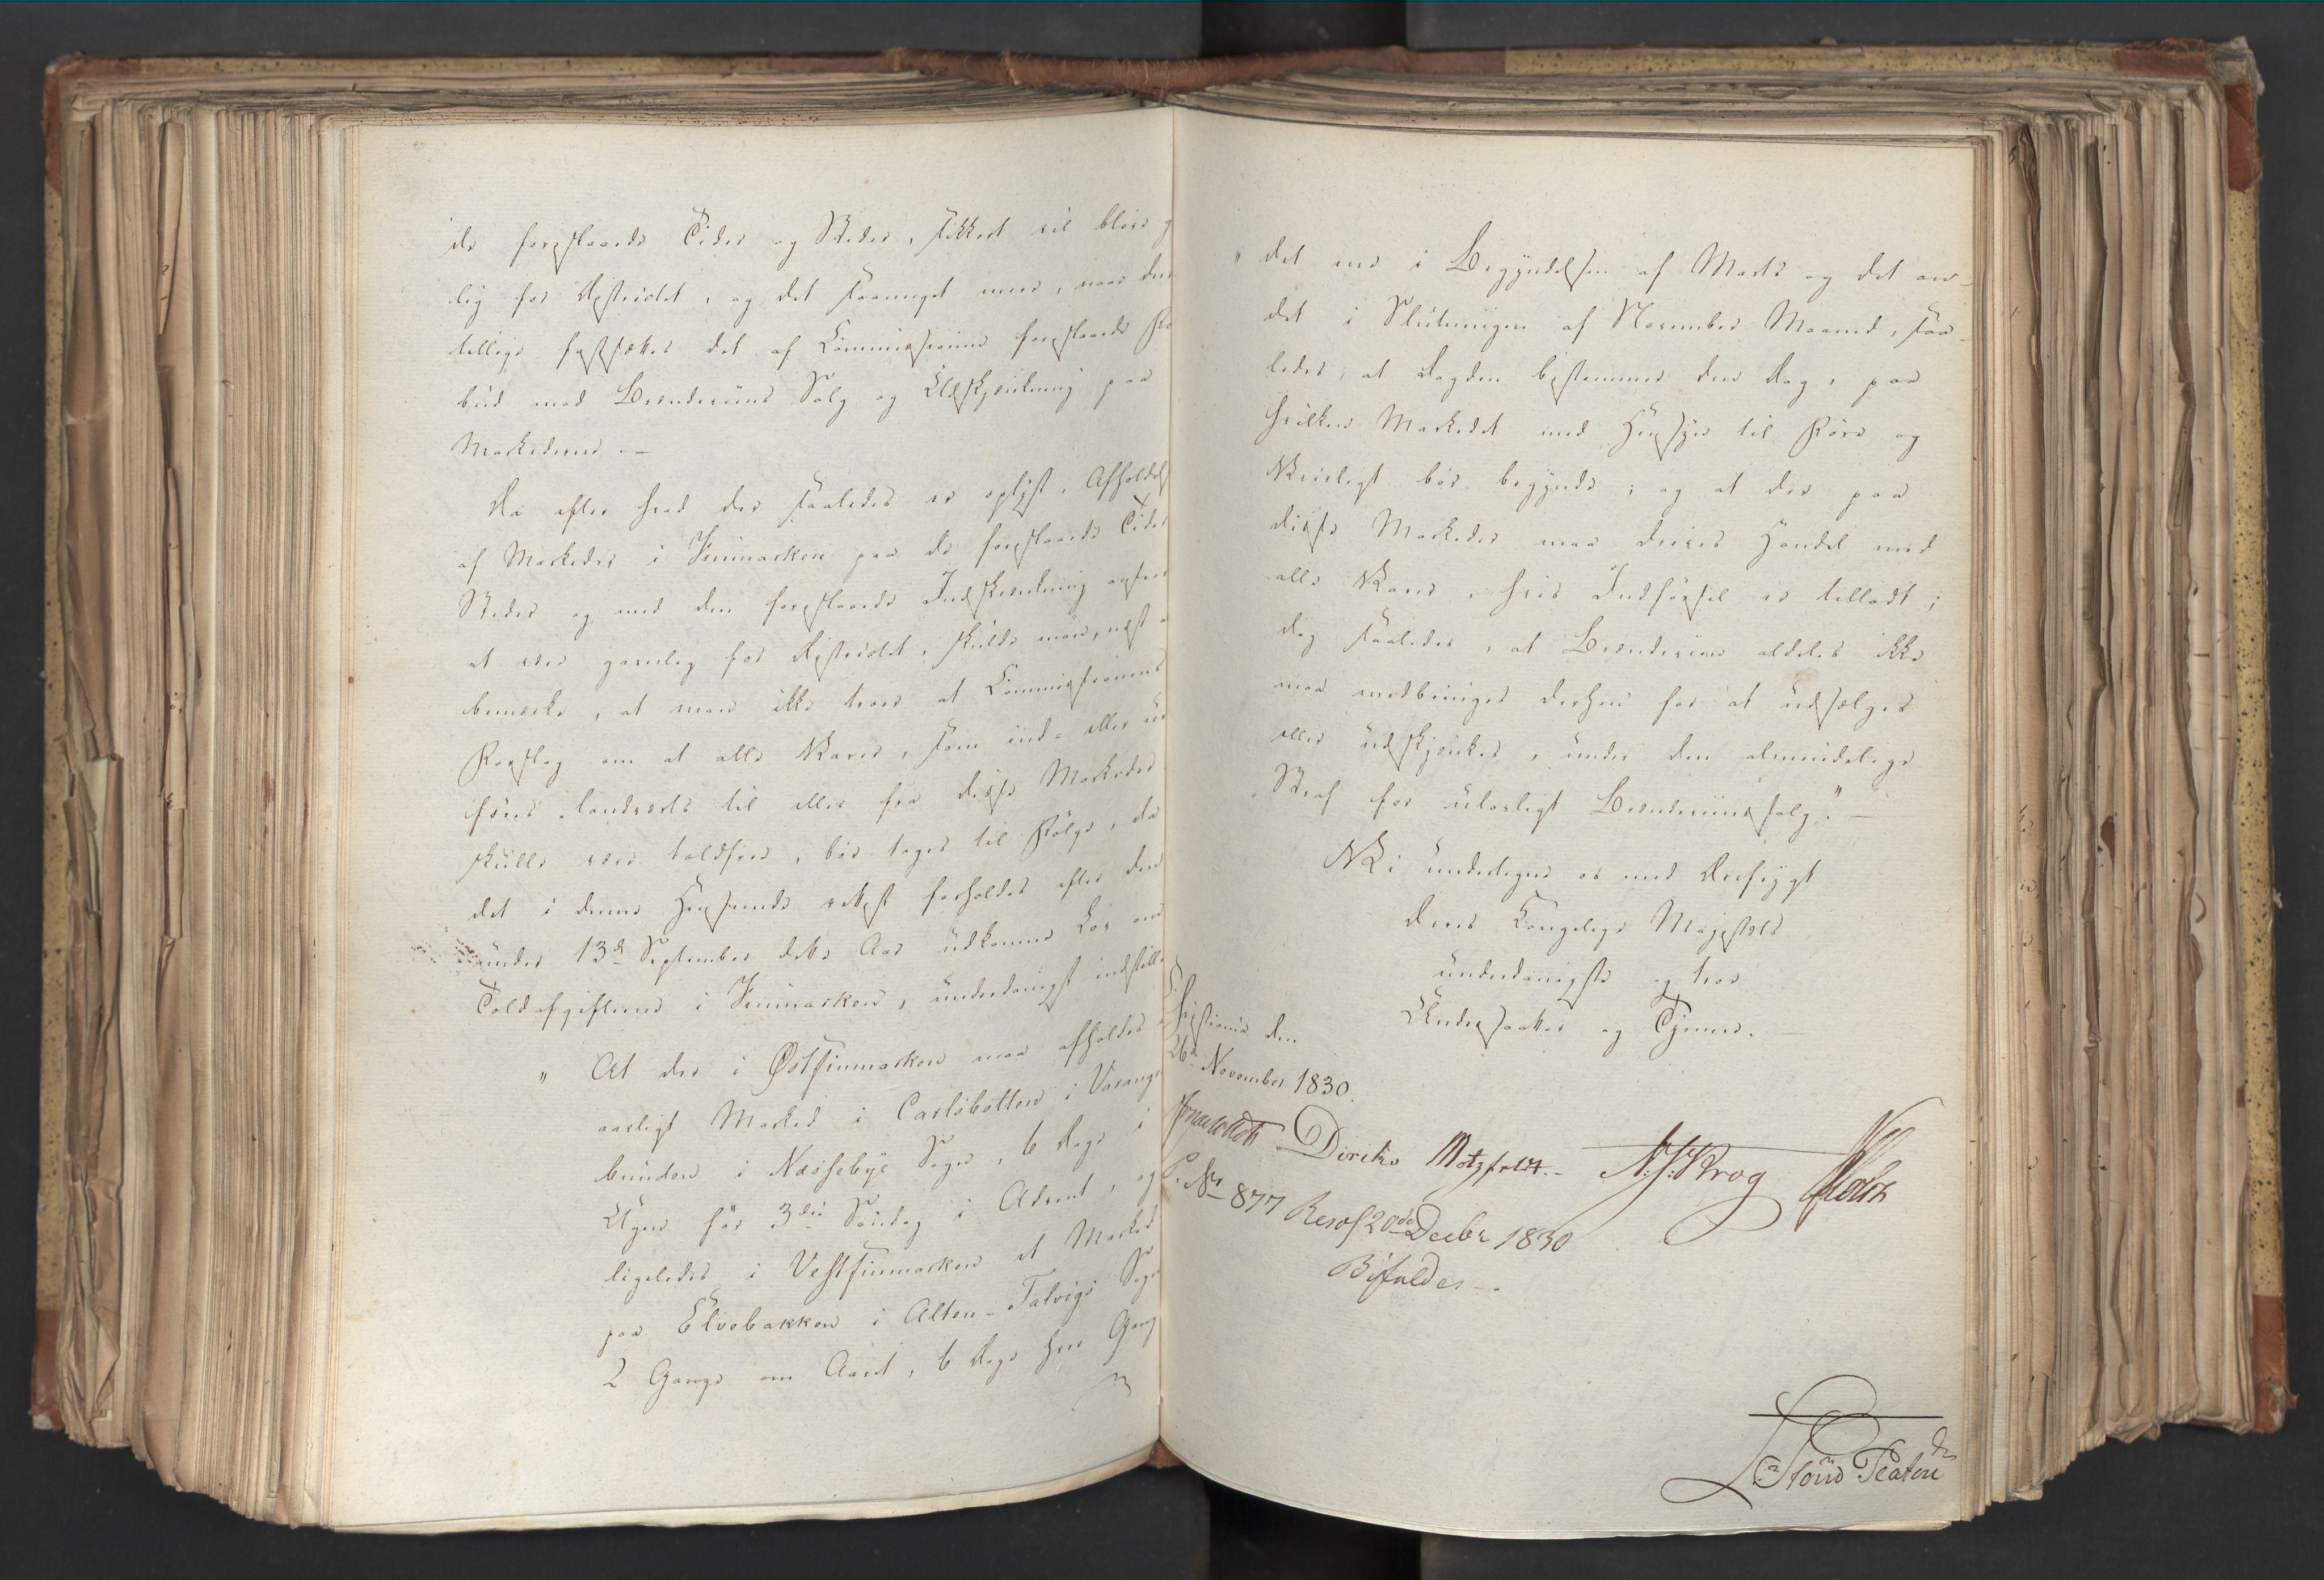 de foreslaaede Tider og Steder, sikkert vil blive g
lig for Districtet, og det saameget mere, naar der
tillige fastsættes det af Commissionen foreslaaede For
bud mod Brændeviins Salg og Udskjænkning paa
Markederne. —
Da efter hvad der saaledes er oplyst, Afholdels
af Markeder i Finmarken paa de foreslaaede Tider
Steder og med den foreslaaede Indskrænkning ansees
at være gavnlig for Districtet, skulde man, næst
bemærke, at man ikke troer at Commissionens
Forslag om at alle Varer, som ind- eller ud
føres landværts til eller fra disse Markeder
skulle være toldfrie, bør tages til Følge, da
det i denne Henseende rettest forholdes efter den
under 13de September dette Aar udkomne Lov om
Toldafgifterne i Finmarken, underdanigst indstille
„ At der i Østfinmarken maa afholdes
aarligt Marked i Carlsbotten i Varange
bunden i Næssebye Sogn, 6 Dage i
Ugen før 3die Søndag i Advent, og
ligeledes i Vestfinmarken et Marked
paa Elvebakken i Alten-Talvigs Sogn
2 Gange om Aaret, 6 Dage hver Gang
„ det ene i Begyndelsen af Marts og det an-
det i Slutningen af November Maaned, saa-
ledes, at Fogden bestemmer den Dag, paa
hvilken Markedet med Hensyn til Føre og
Veirligt bør begynde; og at der paa
disse Markeder maa drives Handel med
alle Varer, hvis Indførsel er tilladt;
dog saaledes, at Brændeviin aldeles ikke
maa medbringes derhen for at udsælges
eller udskjænkes, under den almindelige
Straf for ulovligt Brændeviinssalg." —
Vi undertegne os med Dybsygt
Deres Kongelige Majestæts
underdanigste og troe
Undersaatter og Tjenere.
Christiania den
26de November 1830.
Diriks Motzfeldt. - N. J. Krog
P. No 877 Resol 20de Decbr 1830
Bifaldes -.